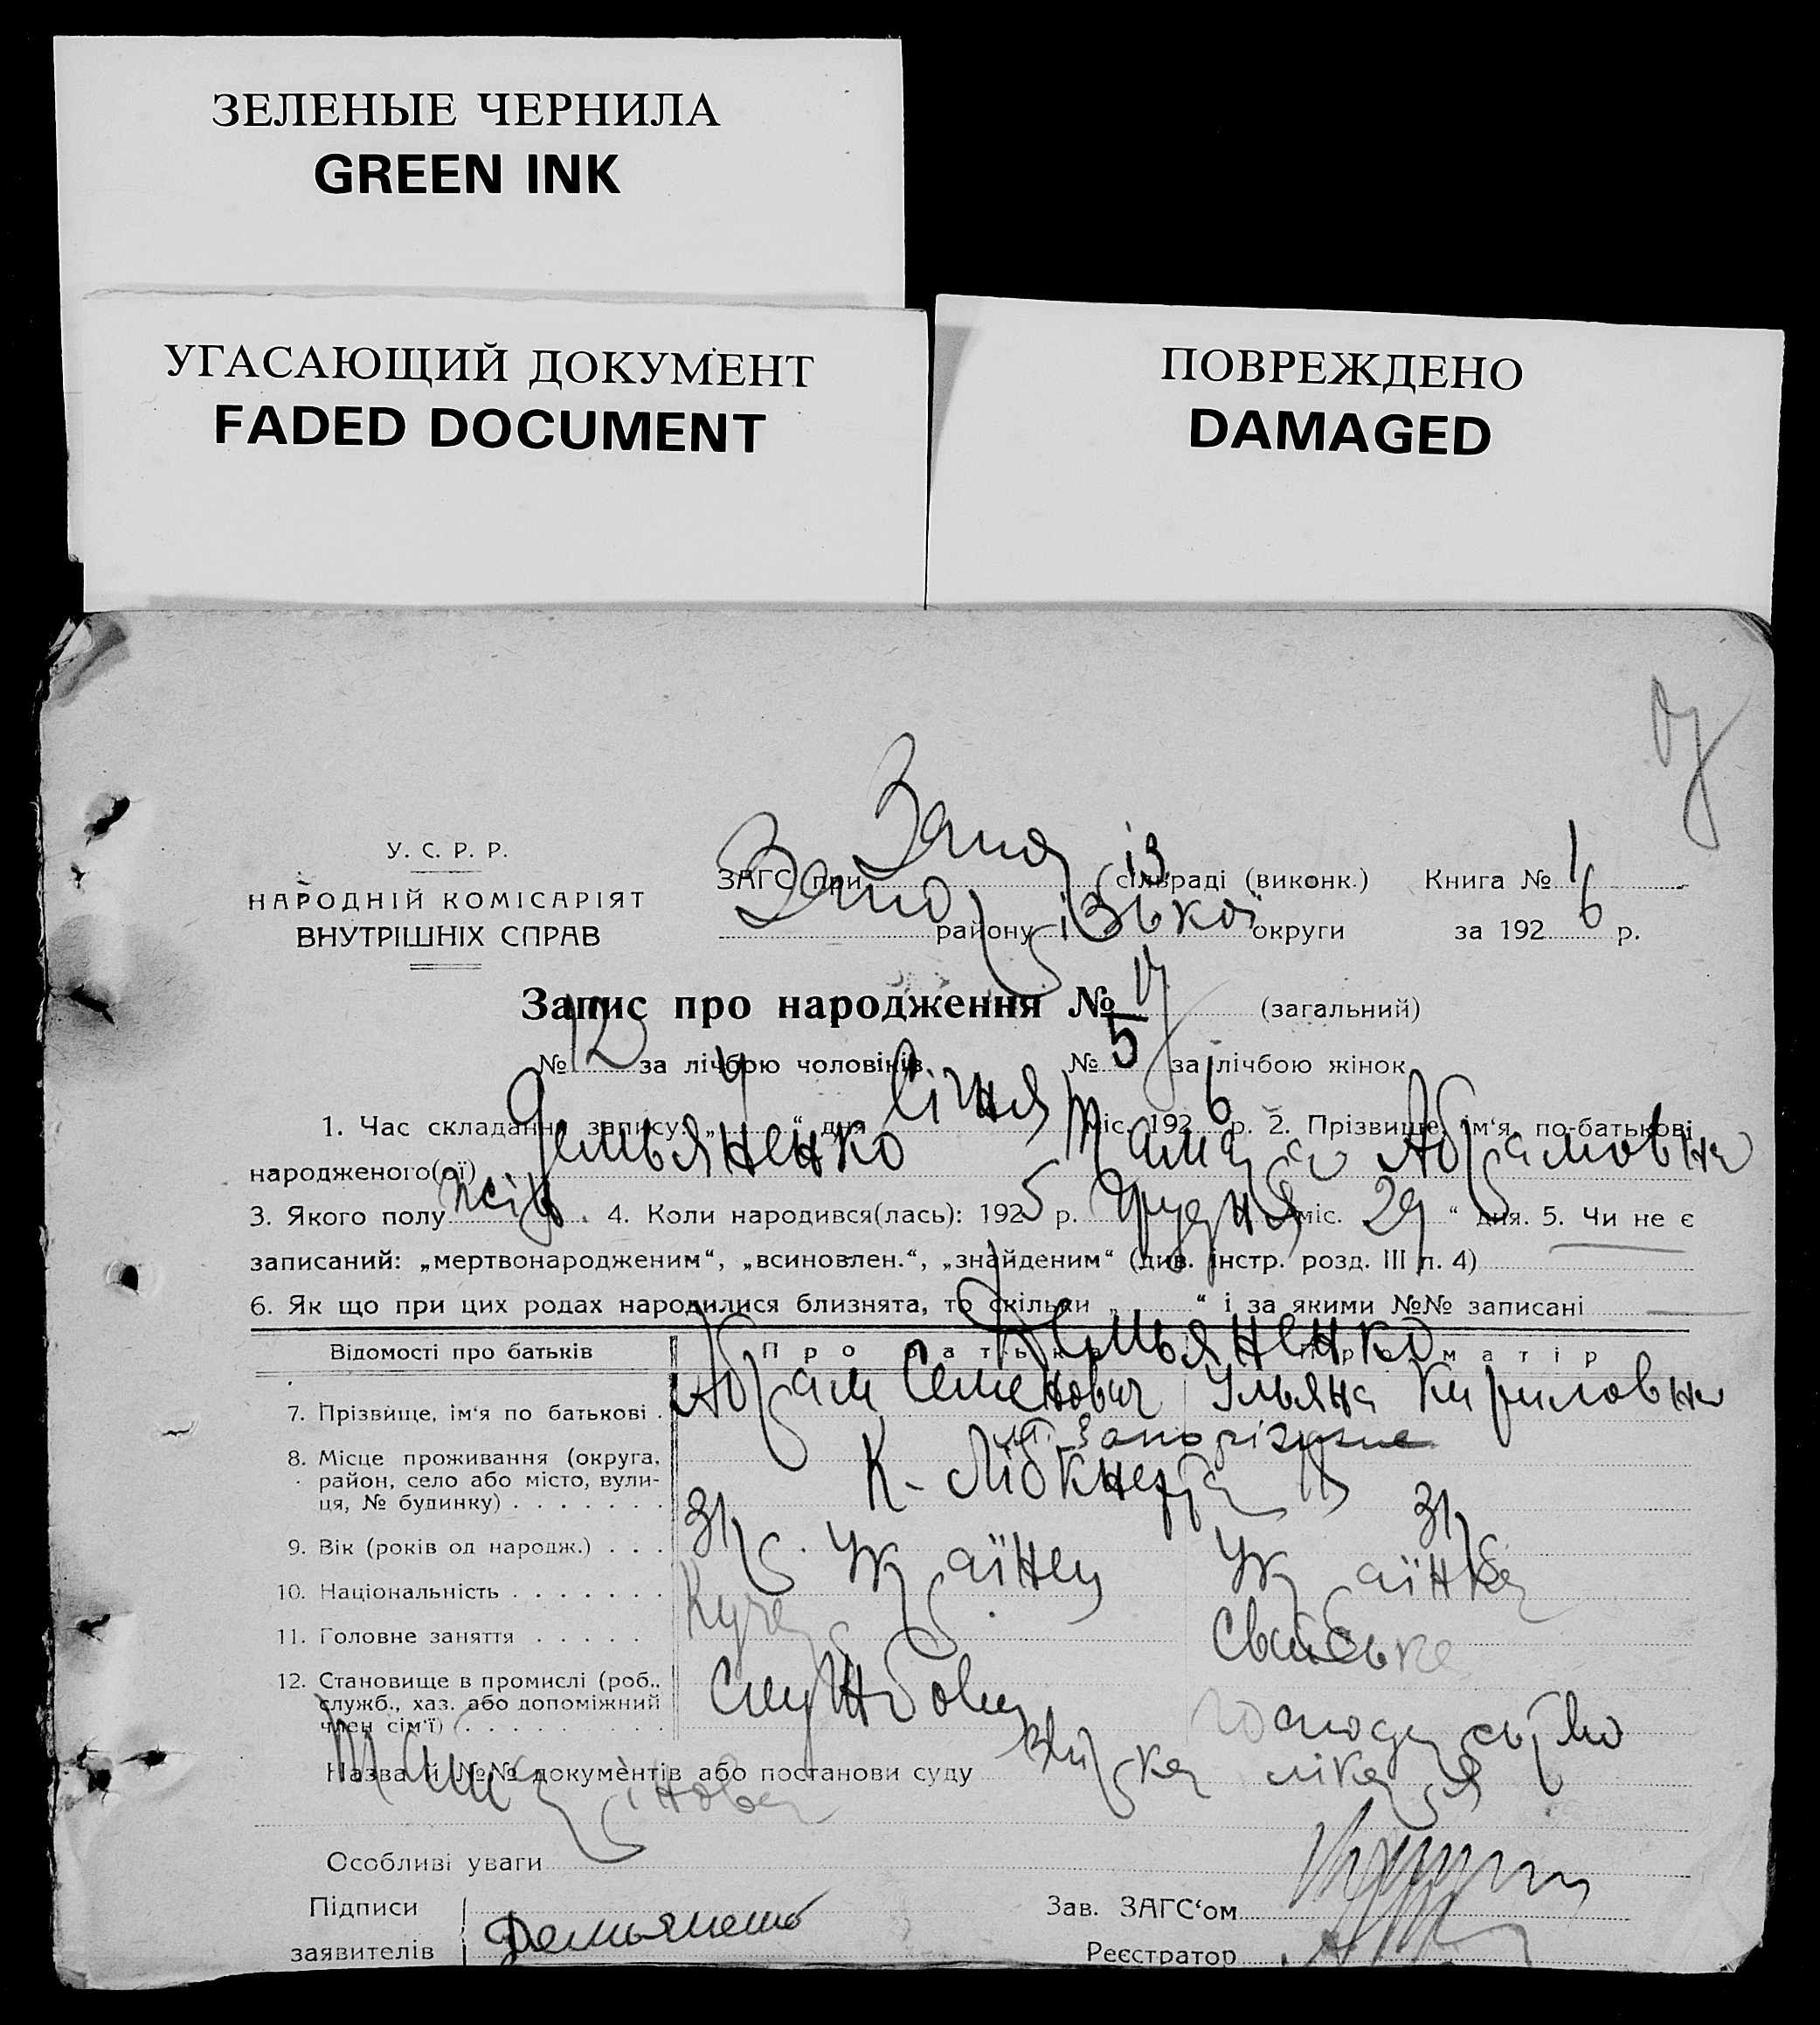 ЗЕЛЕНЫЕ ЧЕРНИЛА
GREEN INK
УГАСАЮЩИЙ ДОКУМЕНТ
FADED DOCUMENT
ПОВРЕЖДЕНО
DAMAGED
У. С. Р. Р.
НАРОДНІЙ КОМІСАРІЯТ
ВНУТРІШНІХ СПРАВ
ЗАГС при Запоріз сільраді (виконк.) Книга № 1
Запорізької району округи за 1926 р.
Запис про народження № 17 (загальний)
№ 12 за лічбою чоловіків № 5 за лічбою жінок
1. Час складання запису: „ 4 “ дня Січня міс. 1926 р. 2. Прізвище, ім‘я, по-батькові
народженого(ої) Демьяненко Тамара Абрамовна
3. Якого полу жін. 4. Коли народився(лась): 1925 р. Грудня міс. 29 “ дня. 5. Чи не є
записаний: „мертвонародженим“, „всиновлен.“, „знайденим“ (див. інстр. розд. III п. 4)
6. Як що при цих родах народилися близнята, то скільки „ “ і за якими №№ записані
Відомості про батьків Про батька Про матір
Демьяненко
7. Прізвище, ім‘я по батькові . Абрам Семенович Ульяна Кириловна
8. Місце проживання (округа, м. Запоріжжє
район, село або місто, вули-
ця, № будинку) . . . . . . . К. Лібкнехта
9. Вік (років од народж.) . . . 31 р. 31 р.
10. Національність . . . . . . . Українец Українка
11. Головне заняття . . . . . Кучер Свайське
12. Становище в промислі (роб.,
служб., хаз. або допоміжний
член сім‘ї) . . . . . . . . . Службовец господарство
Назва й №№ документів або постанови суду лікаря
Особливі уваги
Підписи
заявителів Демьяненко
Зав. ЗАГС‘ом
Реєстратор